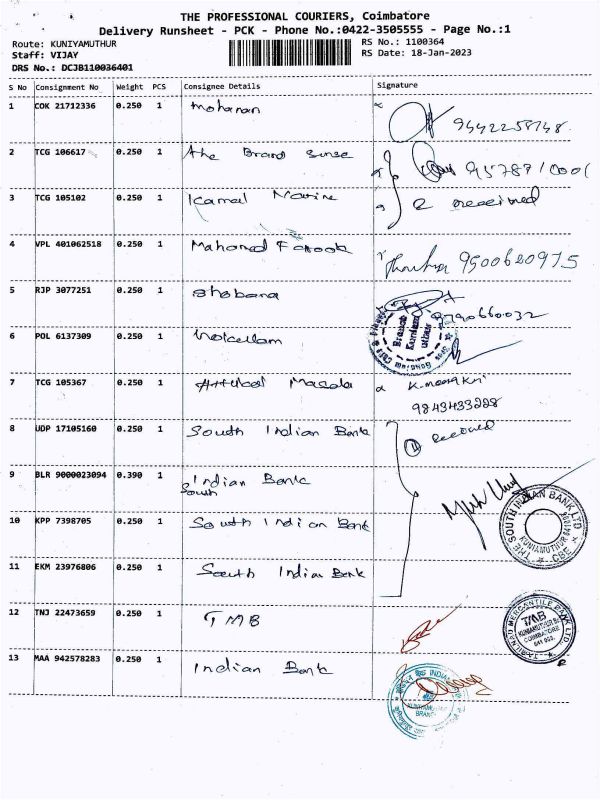 THE PROFESSIONAL COURIERS, Coimbatore
Delivery Runsheet - PCK - Phone No.:0422-3505555 - Page No.:1
Route: KUNIYAMUTHUR RS No.: 1100364
Staff: VIJAY RS Date: 18-Jan-2023
DRS No.: DCJB110036401
S No Consignment No Weight PCS Consignee Details Signature
1 COK 21712336 0.250 1 Mohanan
9442258148
2 TCG 106617 0.250 1 the Brand sense
3 TCG 105102 0.250 1 Kamal Marine
2 received
4 VPL 401062518 0.250 1 Mahamed Farook
9500680975
5 RJP 3077251 0.250 1 Shobana
8790660032
6 POL 6137309 0.250 1
7 TCG 105367 0.250 1 Masala
9843433228
8 UDP 17105160 0.250 1 South Indian Bank
4 received
9 BLR 9000023094 0.390 1 South Indian Bank
10 KPP 7398705 0.250 1 South Indian Bank
THE SOUTH INDIAN BANK LTD
KUNIAMUTHUR
CBE
11 EKM 23976806 0.250 1 South Indian Bank
12 TNJ 22473659 0.250 1 TMB
TAMILNAD MERCANTILE BANK LTD.
TMB
COIMBATORE
13 MAA 942578283 0.250 1 Indian Bank
BRANCH